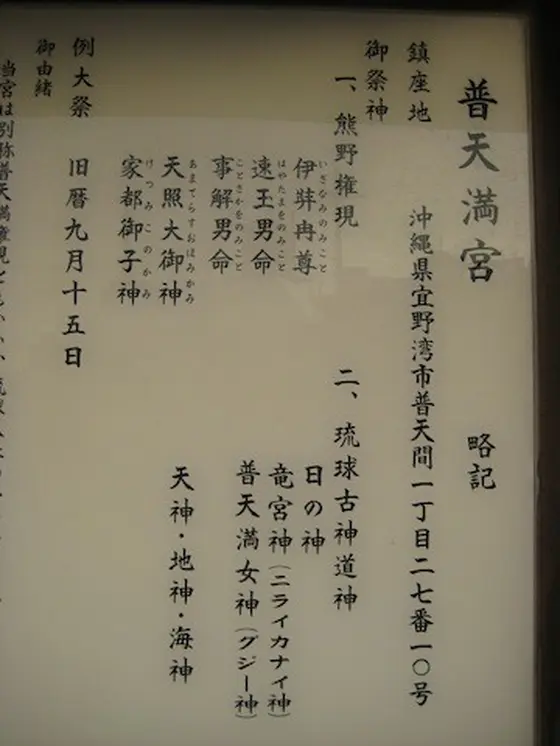 普天満宮　略記
鎮座地　沖縄県宜野湾市普天間一丁目二七番一〇号
御祭神
一、熊野権現
伊弉冉尊
いざなみのみこと
速玉男命
はやたまをのみこと
事解男命
ことさかをのみこと
天照大御神
あまてらすおほみかみ
家都御子神
けつみこのかみ
二、琉球古神道神
日の神
竜宮神（ニライカナイ神）
普天満女神（グジー神）
天神・地神・海神
例大祭　旧暦九月十五日
御由緒